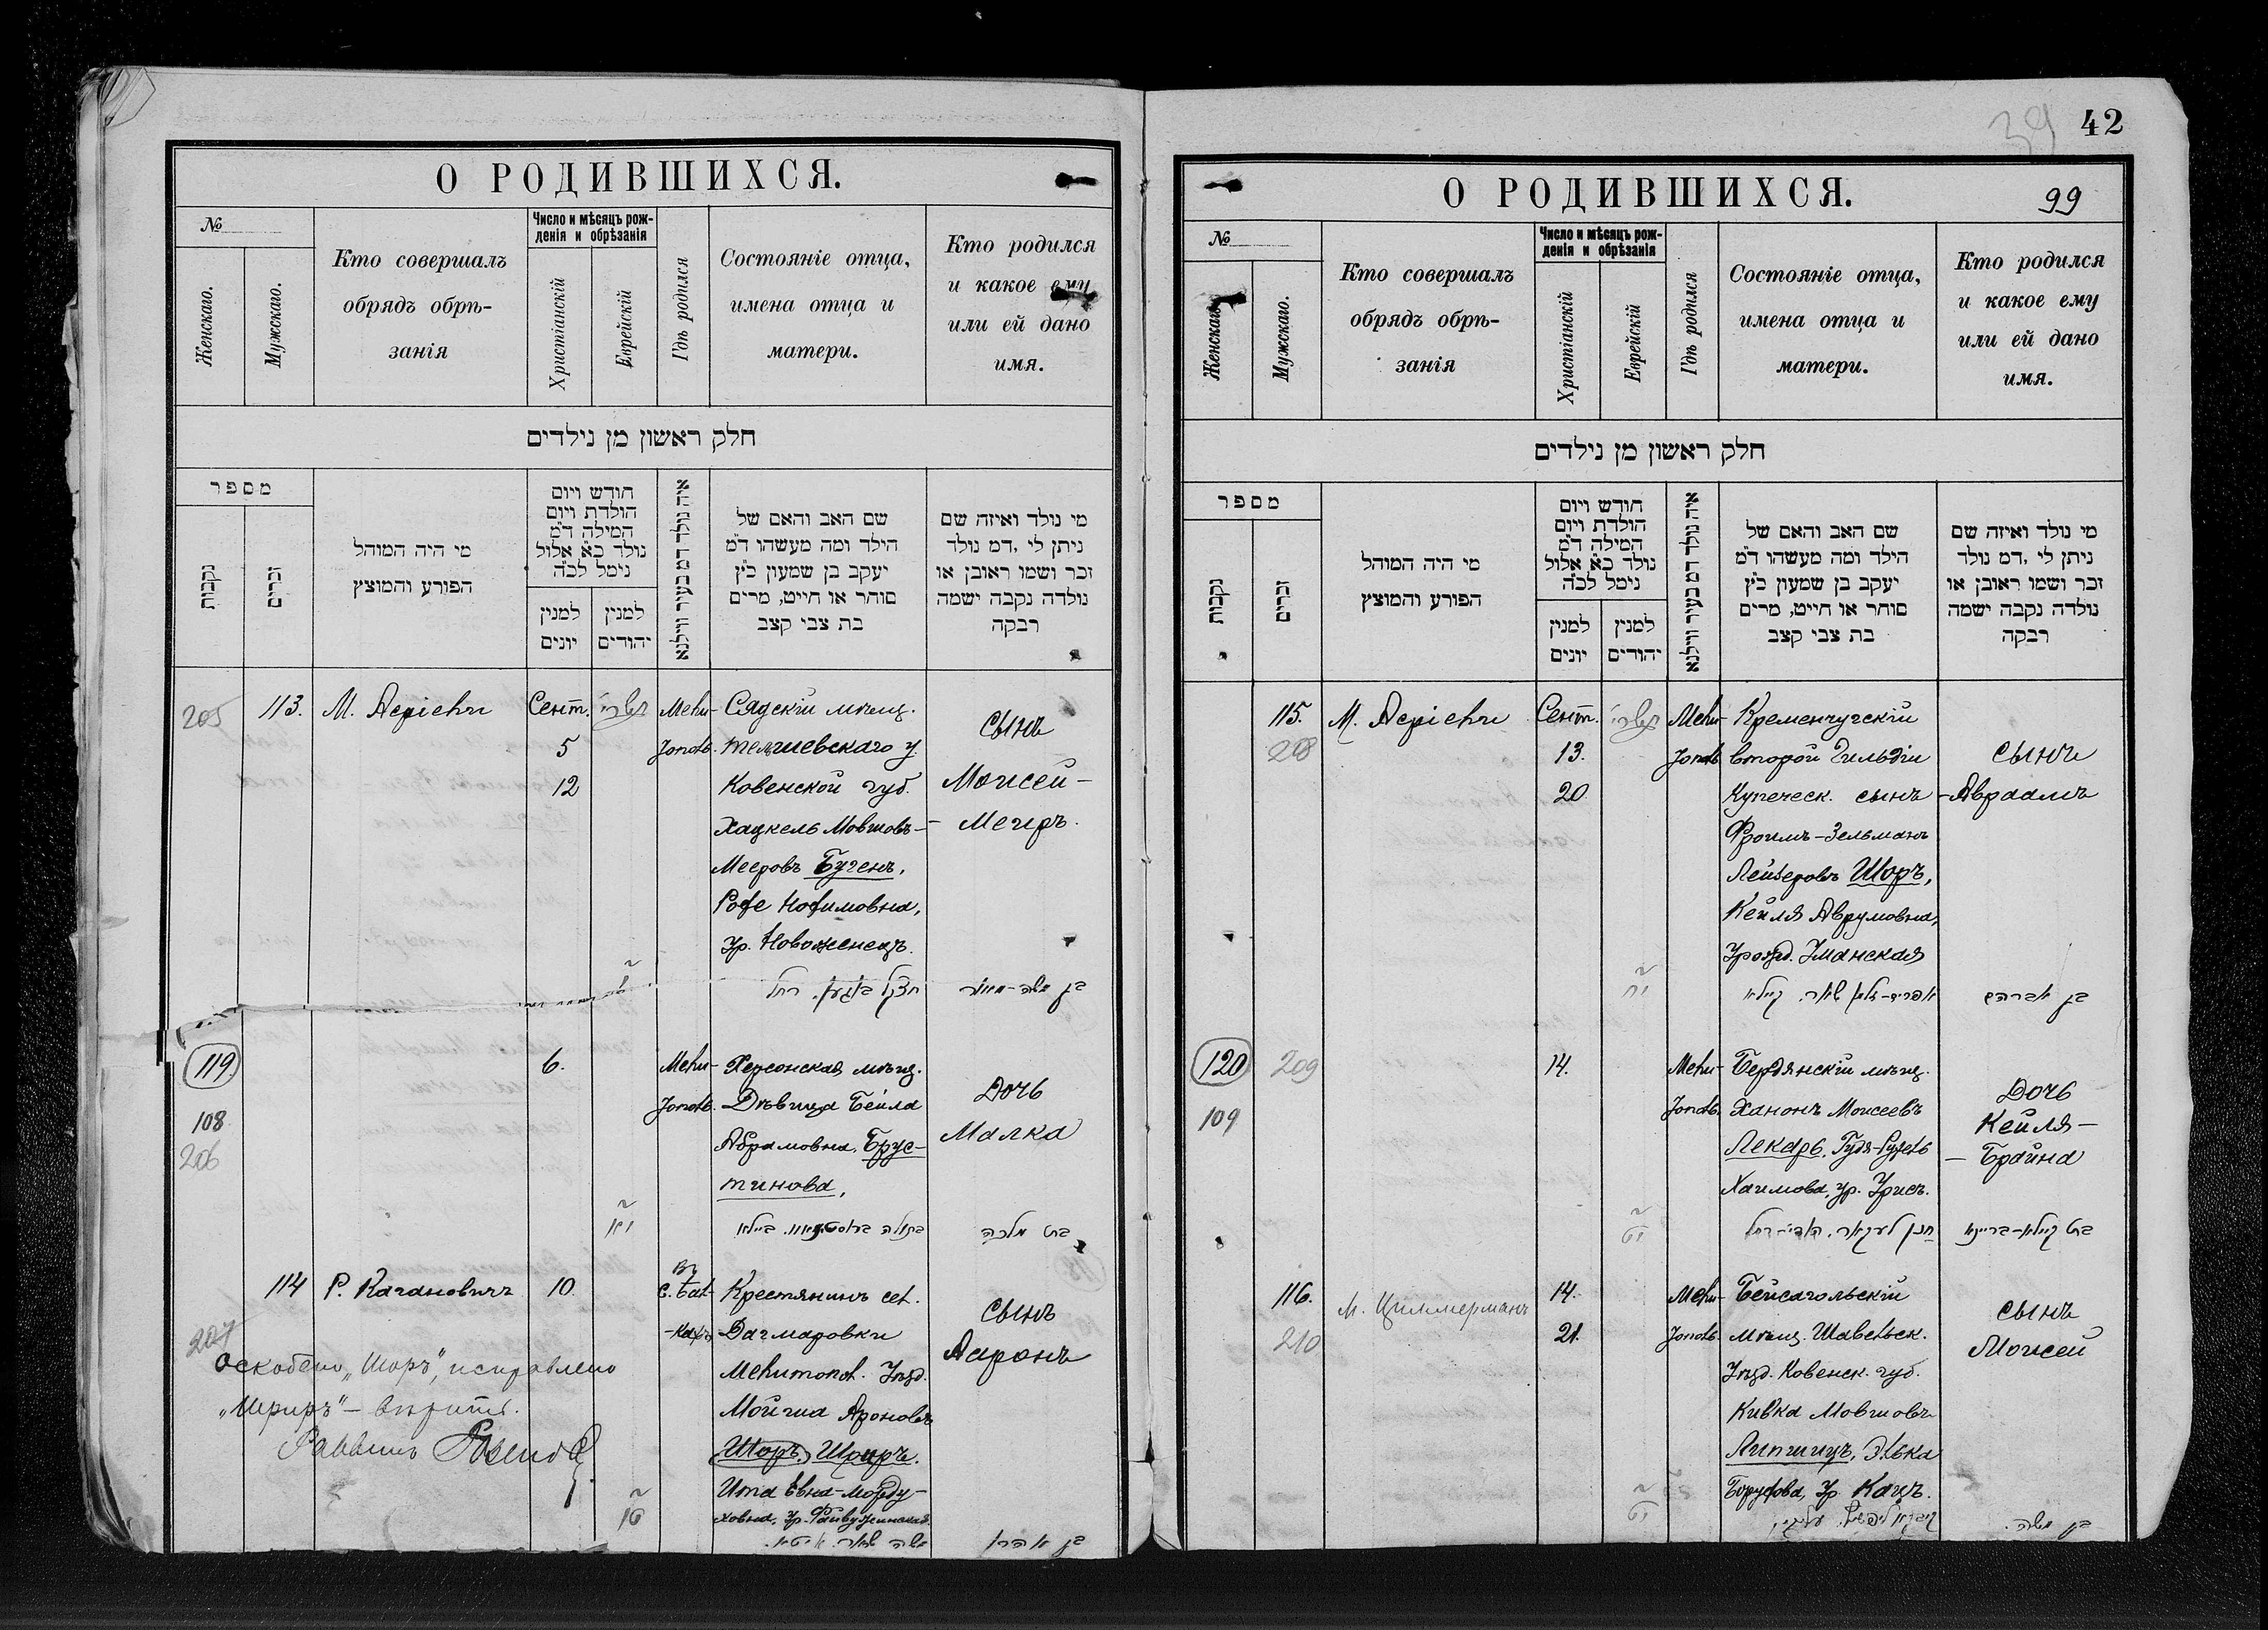 О РОДИВШИХСЯ.
№
Женскаго.
Мужскаго.
Кто совершалъ
обрядъ обрѣ-
занія
Число и мѣсяцъ рож-
денія и обрѣзанія
Христіанскій
Еврейскій
Гдѣ родился
Состояніе отца,
имена отца и
матери.
Кто родился
и какое ему
или ей дано
имя.
חלק ראשון מן נילדים
מספר
נקבות
זכרים
מי היה המוהל
הפורע והמוצץ
חודש ויום
הולדת ויום
המילה ד״מ
נולד כ״א אלול
נימל לכ״ה
למנין
יונים
למנין
יהודים
איה נולד דמ בעיר ווילנא
שם האב והאם של
הילד ומה מעשהו ד״מ
יעקב בן שמעון כ״ץ
סוחר או חייט, מרים
בת צבי קצב
מי נולד ואיזה שם
ניתן לי ,דמ נולד
זכר ושמו ראובן או
נולדה נקבה ישמה
רבקה
205
113.
М.
Сент.
5
12
תשרי
Мели-
тополь.
Сядскій мѣщ.
тельшевскаго у.
Ковенской губ.
Хацкель Мовшовъ-
Мееровъ Бугенъ,
ур. Новоженецъ.
Сынъ
Моисей-
-Меиръ.
בן משה-מאיר
119
108
206
6.
Мели-
тополь.
Херсонская мѣщ.
Дѣвица Бейла
Абрамовна, Брус-
тинова,
Дочь
Малка
בת מלכה
114
207
Р. Кагановичъ
10.
Крестянинъ сел.
Дагмаровки
Мелитопол. Уѣзд.
Мойша Ароновъ
Шоръ. Шриръ.
Сынъ
Ааронъ
בן אהרן
Оскоблено „Шоръ", исправлено
„Шриръ" — вѣрить.
Раввинъ
42
39
О РОДИВШИХСЯ.
99
№
Женскаго.
Мужскаго.
Кто совершалъ
обрядъ обрѣ-
занія
Число и мѣсяцъ рож-
денія и обрѣзанія
Христіанскій
Еврейскій
Гдѣ родился
Состояніе отца,
имена отца и
матери.
Кто родился
и какое ему
или ей дано
имя.
חלק ראשון מן נילדים
מספר
נקבות
זכרים
מי היה המוהל
הפורע והמוצץ
חודש ויום
הולדת ויום
המילה ד״מ
נולד כ״א אלול
נימל לכ״ה
למנין
יונים
למנין
יהודים
איה נולד דמ בעיר ווילנא
שם האב והאם של
הילד ומה מעשהו ד״מ
יעקב בן שמעון כ״ץ
סוחר או חייט, מרים
בת צבי קצב
מי נולד ואיזה שם
ניתן לי ,דמ נולד
זכר ושמו ראובן או
נולדה נקבה ישמה
רבקה
115.
208
М.
Сент.
13.
20
תשרי
Мели-
тополь
Кременчугскій
второй Гильдіи
Купеческ. сынъ
Фроимъ-Зельманъ
Лейзеровъ Шоръ,
Кейля Аврумовна,
Урожд. Уманская
Сынъ
-Авраамъ
יח
בן אברהם
120
209
109
14.
Мели-
тополь.
Бердянскій мѣщ.
Ханонъ Моисеевъ
Лекарь,
Хаимова, ур.
Дочь
Кейля-
-Брайна
יט
בת קיילא-בריינא
116.
210
М. Циммерманъ
14.
21.
Мели-
тополь.
Бейсагольскій
мѣщ. Шавельск.
Уѣзд. Ковенск. губ.
Кивка Мовшовъ
Липшицъ, Элька
Борухова, ур. Кацъ.
Сынъ
Моисей
יט
בן משה.